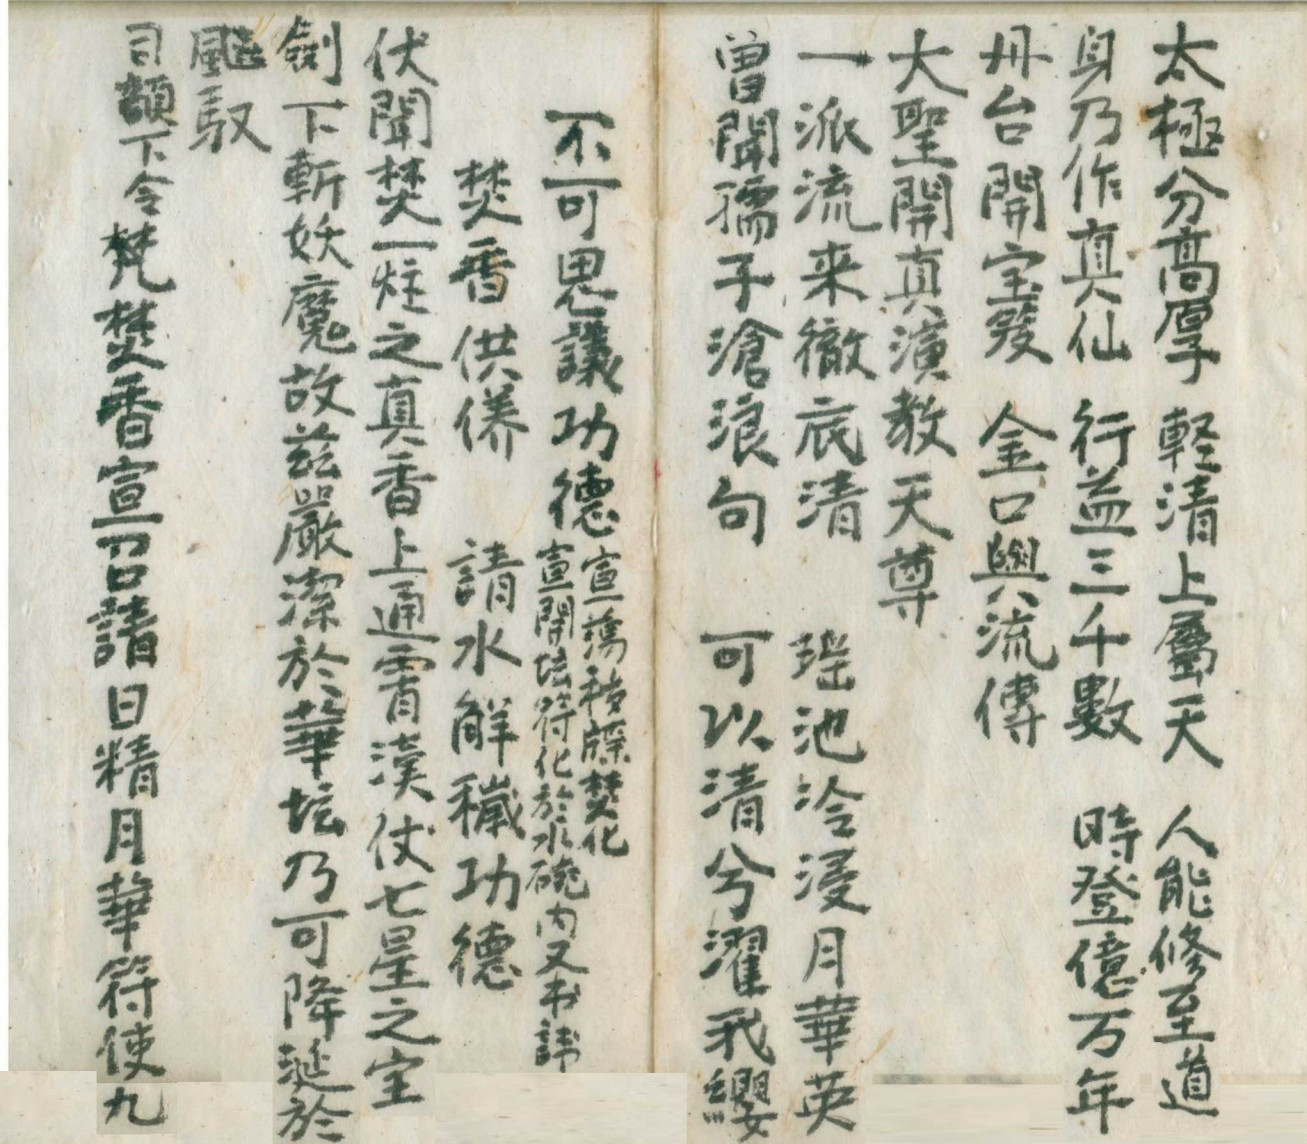 太極分高厚 軽清上屬天 人能修至道
身乃作真仙 行益三千數 時登億万年
丹台開宝笈 金口與流傳
大聖開真演教天尊
一派流来徹底清 瑶池冷浸月華英
曽聞孺子滄浪句 可以清兮濯我纓
不可思議功德
宣蕩穢牒焚化
宣開坛符化於水碗内又书諱
焚香供养 請水解穢功德
伏聞焚一炷之真香上通霄漢仗七星之宝
劍下斬妖魔故茲嚴潔於華坛乃可降延於
飈馭
司額下令焚香宣召請日精月華符使九